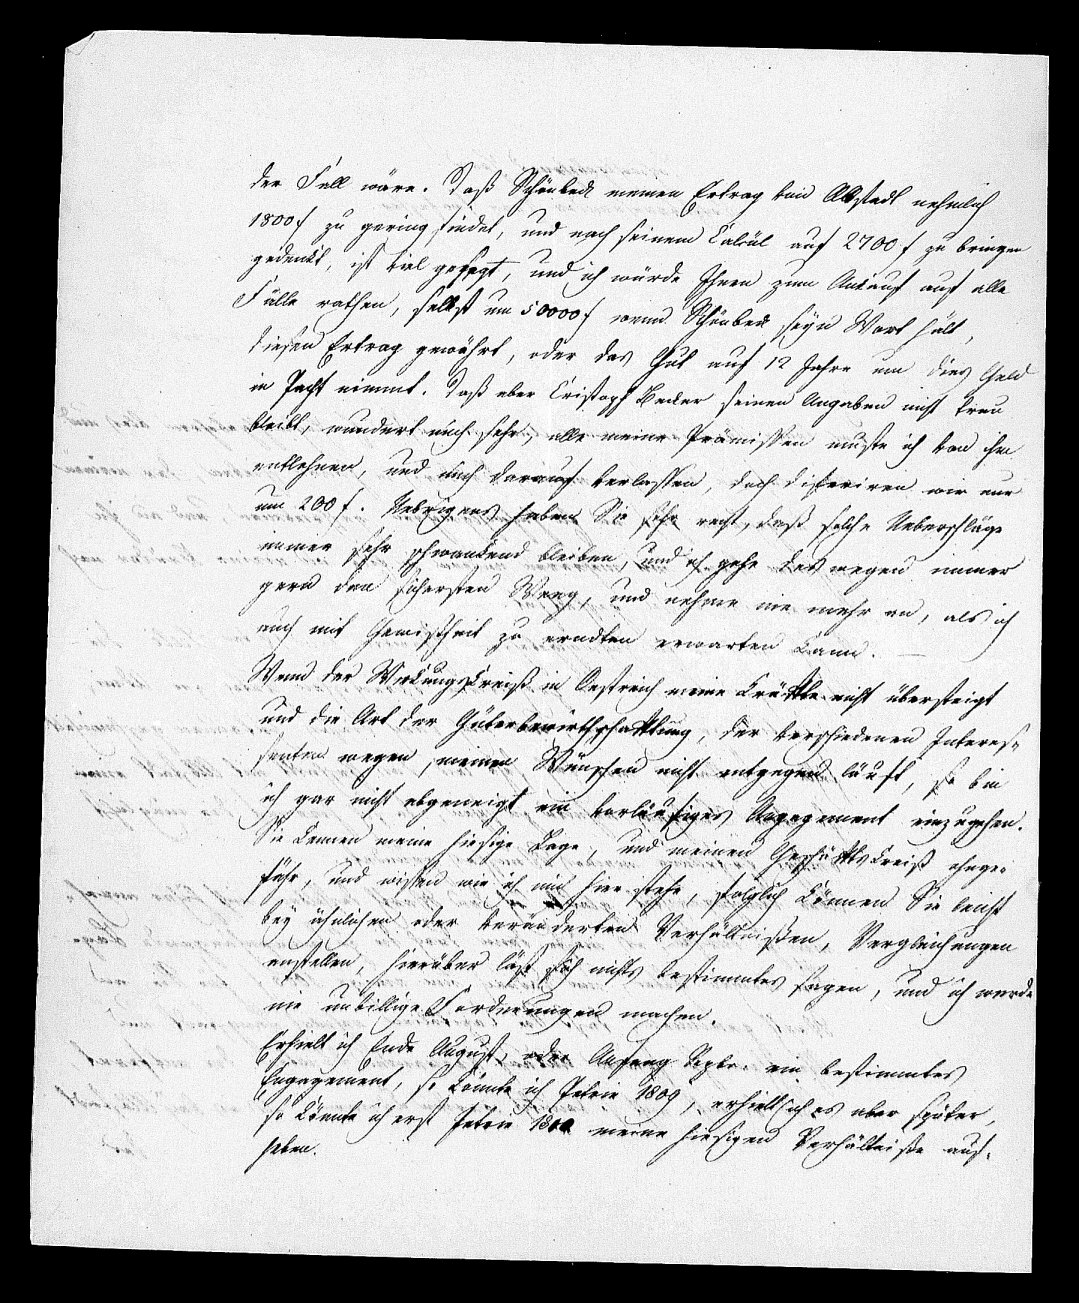 der Fall wäre. Daß Schönbeck meinen Ertrag von Albstadt nehmlich
1800 f zu gering findet, und nach seinem Calcül auf 2700 f zu bringen
gedenkt, ist viel gesagt, und ich würde Ihnen zum Ankauf auf alle
Fälle rathen, selbst um 50000 f wenn Schönbeck seyn Wort hält,
diesen Ertrag gewährt, oder das Gut auf 12 Jahre um dies Geld
in Pacht nimmt. Daß aber Cristoph Becker seinen Angaben nicht treu
bleibt, wundert mich sehr, alle meine Prämissen muste ich von ihm
entlehnen, und mich darauf verlassen, doch diferiren wir nur
um 200 f. Uebrigens haben Sie sehr recht, daß solche Ueberschläge
immer sehr schwankend bleiben, und ich gehe deswegen immer
gern den sichersten Weeg, und nehme nie mehr an, als ich
auch mit Gewißheit zu erndten erwarten kann. —
Wenn der Wirkungskreiß in Oestreich meine Kräfte nicht übersteigt
und die Art der Güterbewirthschaftung, der verschiedenen Interes=
senten wegen, meinen Wünschen nicht entgegen läuft, so bin
ich gar nicht abgeneigt ein vorläufiges Angagement einzugehen.
Sie kennen meine hiesige Lage, und meinen Geschäftskreiß ohnge=
fähr, und wissen wie ich mich hier stehe, folglich können Sie leicht
bey ähnlichen oder veränderten Verhältnißen, Vergleichungen
anstellen, hierüber läßt sich nichts bestimmtes sagen, und ich werde
nie unbillige Forderungen machen.
Erhielt ich Ende August, oder Anfang Septbr. ein bestimmtes
Engagement, so könnte ich Petrie 1809, erhielt ich es aber später,
so könnte ich erst Petrie 1810 meine hiesigen Verhältniße auf=
heben.